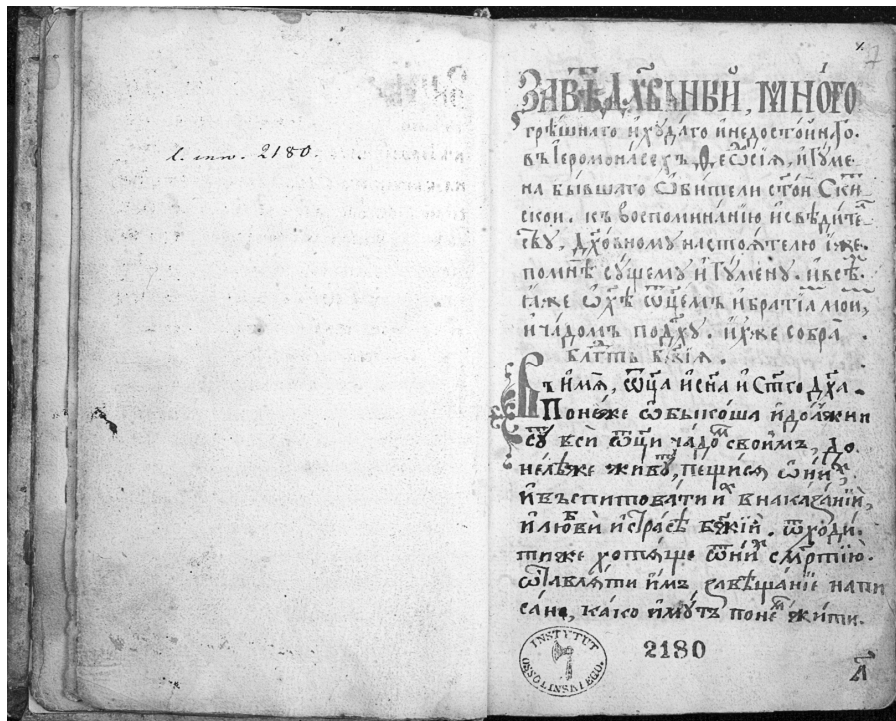 l. inw. 2180.
7
ЗАВѢ́Тъ Дх҃ѡ́вный, мно́го
грѣ́шнаго и҆ худа́го и҆ недосто́йнаго.
въ І҆еромона́сехъ Ѳеѡ҆до́сїѧ, и҆гꙋме
на бы́вшаго ѡ҆би́тели ст҃о́й Ски
скои. къ воспомина́нїю и҆ свѣди́те
сву, дх҃о́вному настоѧ́телю и҆́же
по мнѣ̀ сꙋ́щемꙋ и҆гꙋ́менꙋ. и҆ всѣ
ꙗ҆́же ѡ҆ хѣ̃ ѿц҃е́мъ и҆ бра́тїѧ мои,
и҆ ча́домъ по дх҃ꙋ. и҆́хже собра̀
благ҃ть бж҃їѧ.
Въ и҆́мѧ, ѿц҃а и҆ сн҃а и҆ ст҃го дх҃а.
Поне́же ѡ҆быко́ша и҆ до́лжни
сꙋ́ть всѝ ѿц҃и ча́домъ свои́мъ, до
не́лѣже живꙋ́тъ, пещи́сѧ ѡ҆ ни́хъ,
и҆ въспитова́ти и҆́хъ в наказа́нїи,
и҆ любвѝ и҆ стра́сѣ бж҃їй. ѿходи́
ти же хотѧ́ще ѿ ни́хъ сме́ртїю.
ѡ҆ставлѧ́ти и҆́мъ завѣща́нїе напи
са́но, ка́ко и҆́мꙋтъ поне́мъ жи́ти.
INSTYTUT
OSSOLIŃSKIEGO.
2180